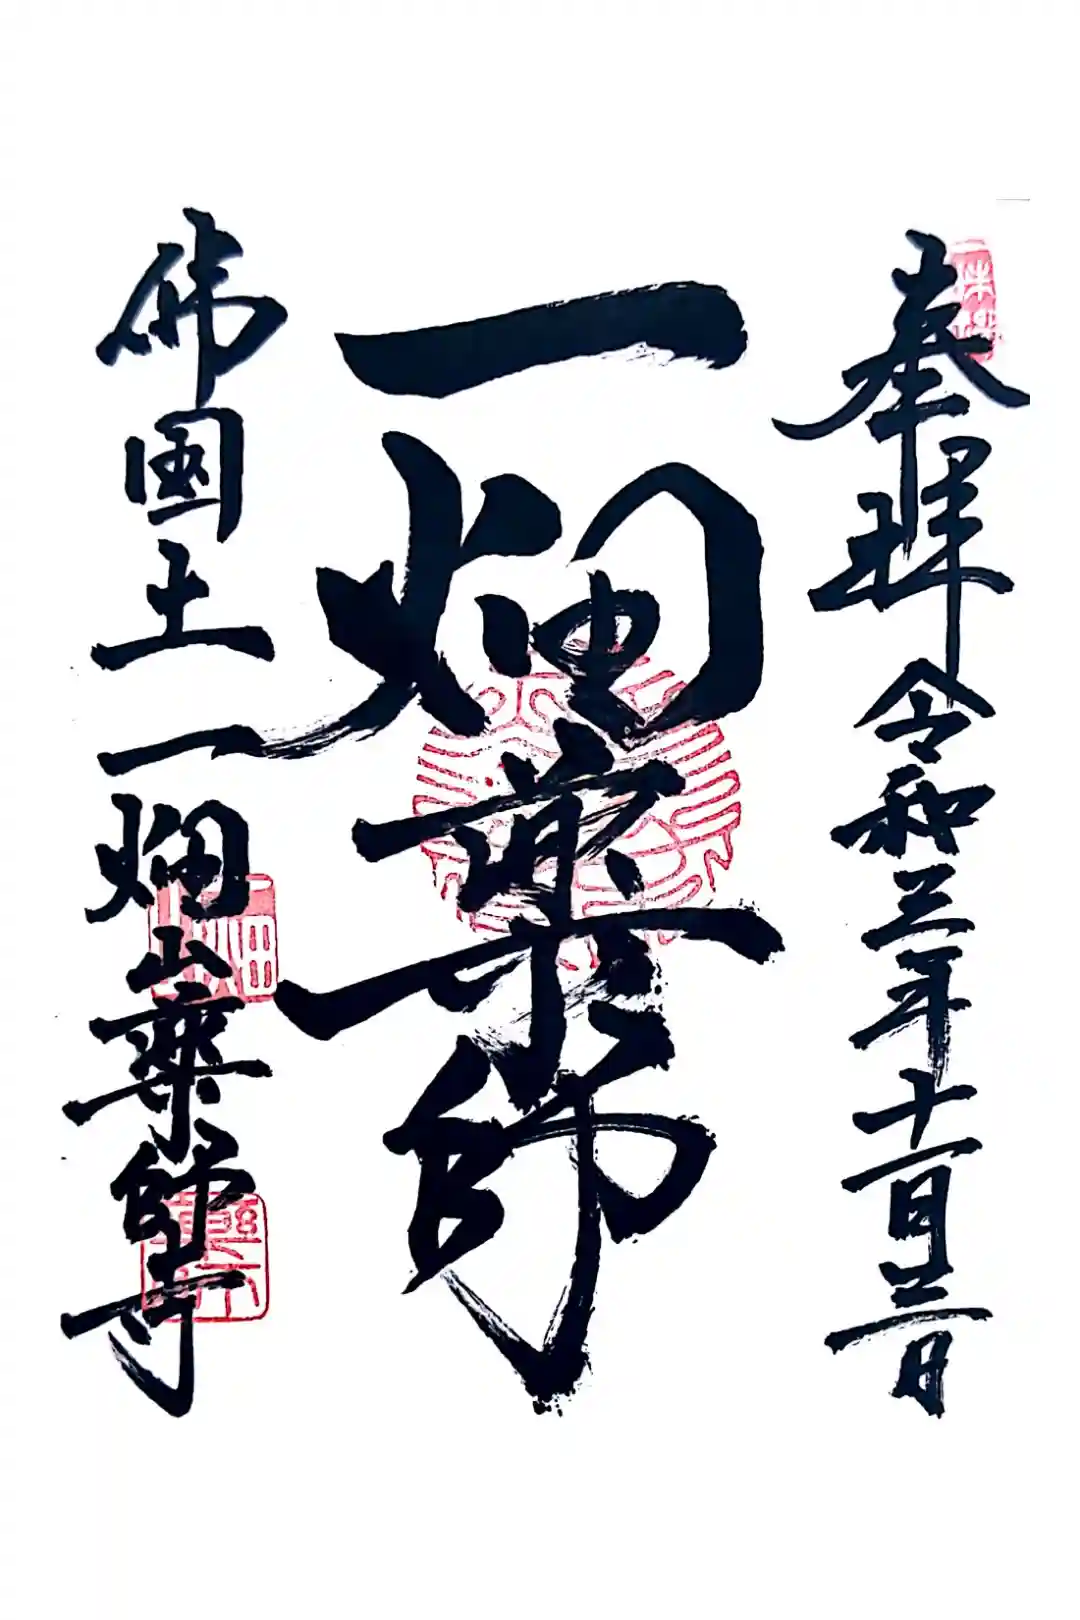 奉拝 令和三年十一月三日
一畑薬師
佛國土 一畑山薬師寺